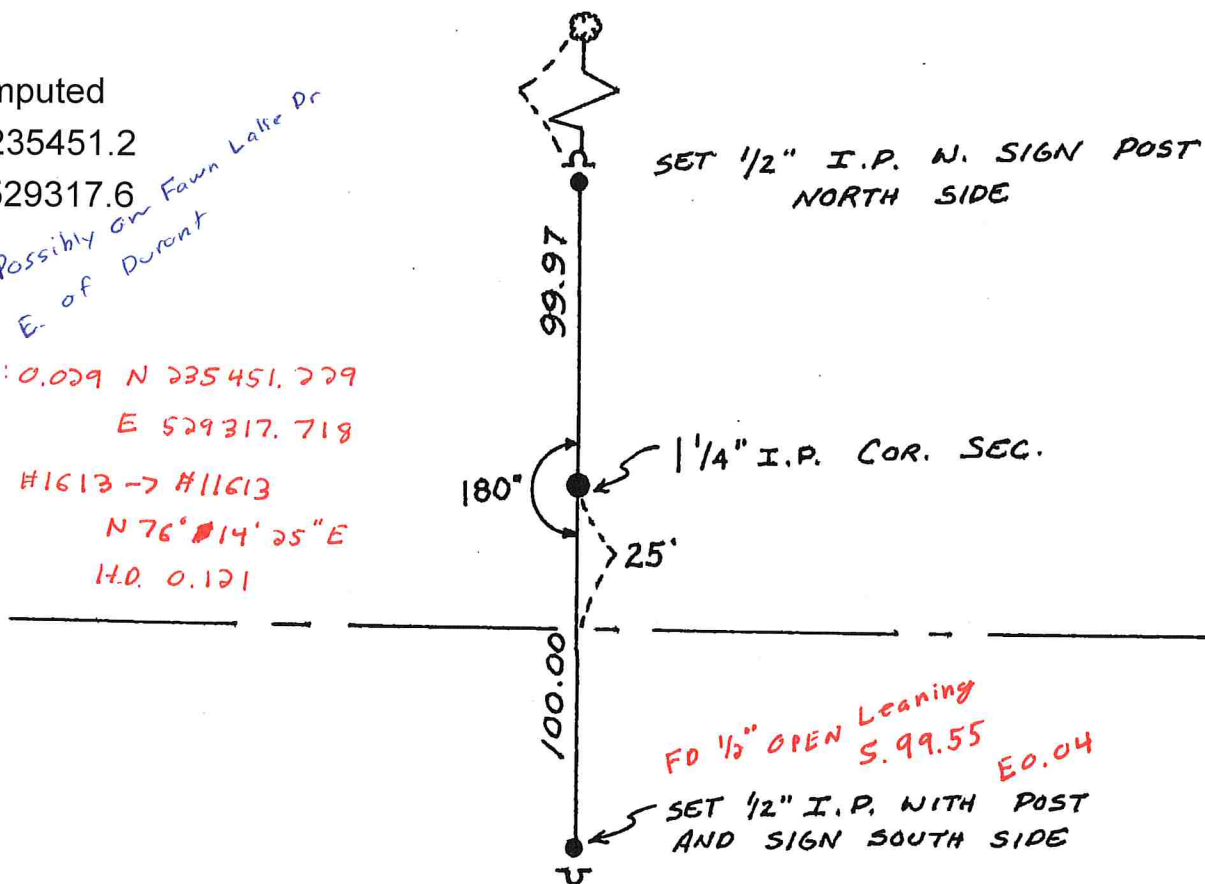 mputed
235451.2
529317.6
Possibly on Fawn Lake Dr
E. of Durant
: 0.029 N 235451.229
E 529317.718
#1613 -> #11613
N 76° 14' 25" E
H.D. 0.121
SET 1/2" I.P. W. SIGN POST
NORTH SIDE
99.97
1 1/4" I.P. COR. SEC.
180°
25'
100.00
FD 1/2" OPEN Leaning
S. 99.55
E0.04
SET 1/2" I.P. WITH POST
AND SIGN SOUTH SIDE